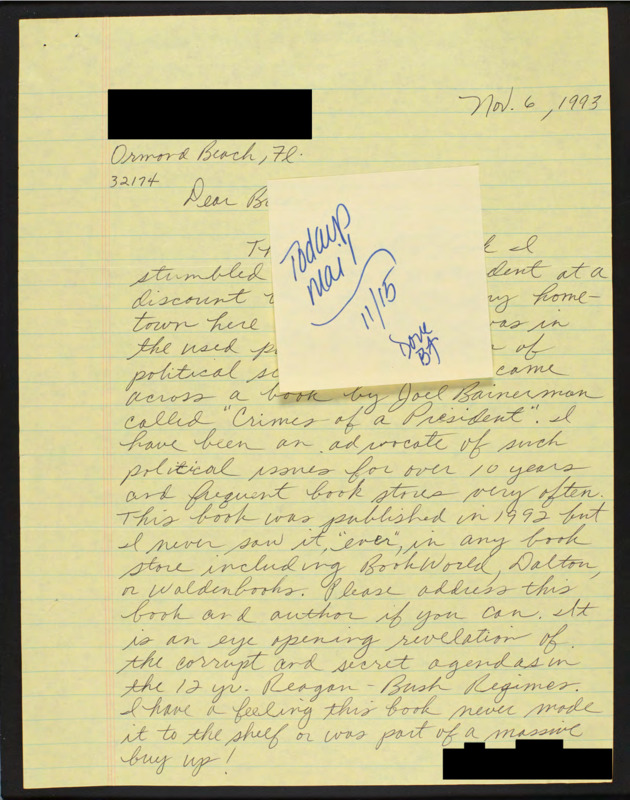 Nov. 6, 1993
Ormond Beach, Fl.
32174
Dear
Today's
Mail
11/15
stumbled dent at a
discount
town here was in
the used of
political came
across a book by Joel Bainerman
called "Crimes of a President". I
have been an advocate of such
political issues for over 10 years
and frequent book stores very often.
This book was published in 1992 but
I never saw it, "ever", in any book
store including BookWorld, Dalton,
or Waldenbooks. Please address this
book and author if you can. It
is an eye opening revelation of
the corrupt and secret agendas in
the 12 yr. Reagan - Bush Regimes.
I have a feeling this book never made
it to the shelf or was part of a massive
buy up!